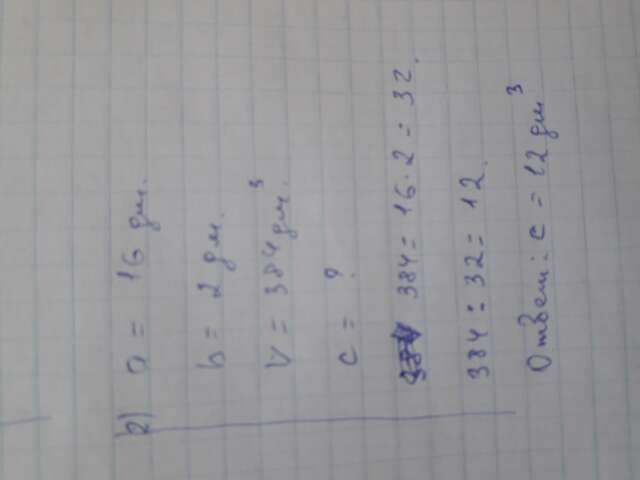 2) a = 16 дм.
b = 2 дм.
V = 384 дм³.
c = ?
384 = 16 · 2 = 32.
384 : 32 = 12.
Ответ: c = 12 дм³